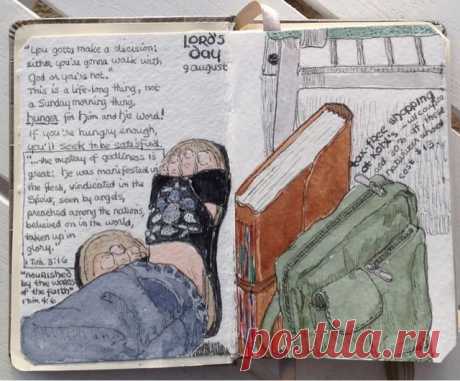 LORD'S
DAY
9 august
"You gotta make a decision:
either you're gonna walk with
God or you're not."
This is a life-long thing, not
a Sunday morning thing.
hunger for Him and His word!
If you're hungry enough,
you'll seek to be satisfied.
"...the mystery of godliness is
great: He was manifested in
the flesh, vindicated in the
Spirit, seen by angels,
preached among the nations,
believed on in the world,
taken up in
glory."
1 Tim. 3:16
"nourished
by the words
of the faith"
1 Tim 4:6
Race Face shopping
at Kohl's
50% off these
shoes!
cost $15.
postila.ru